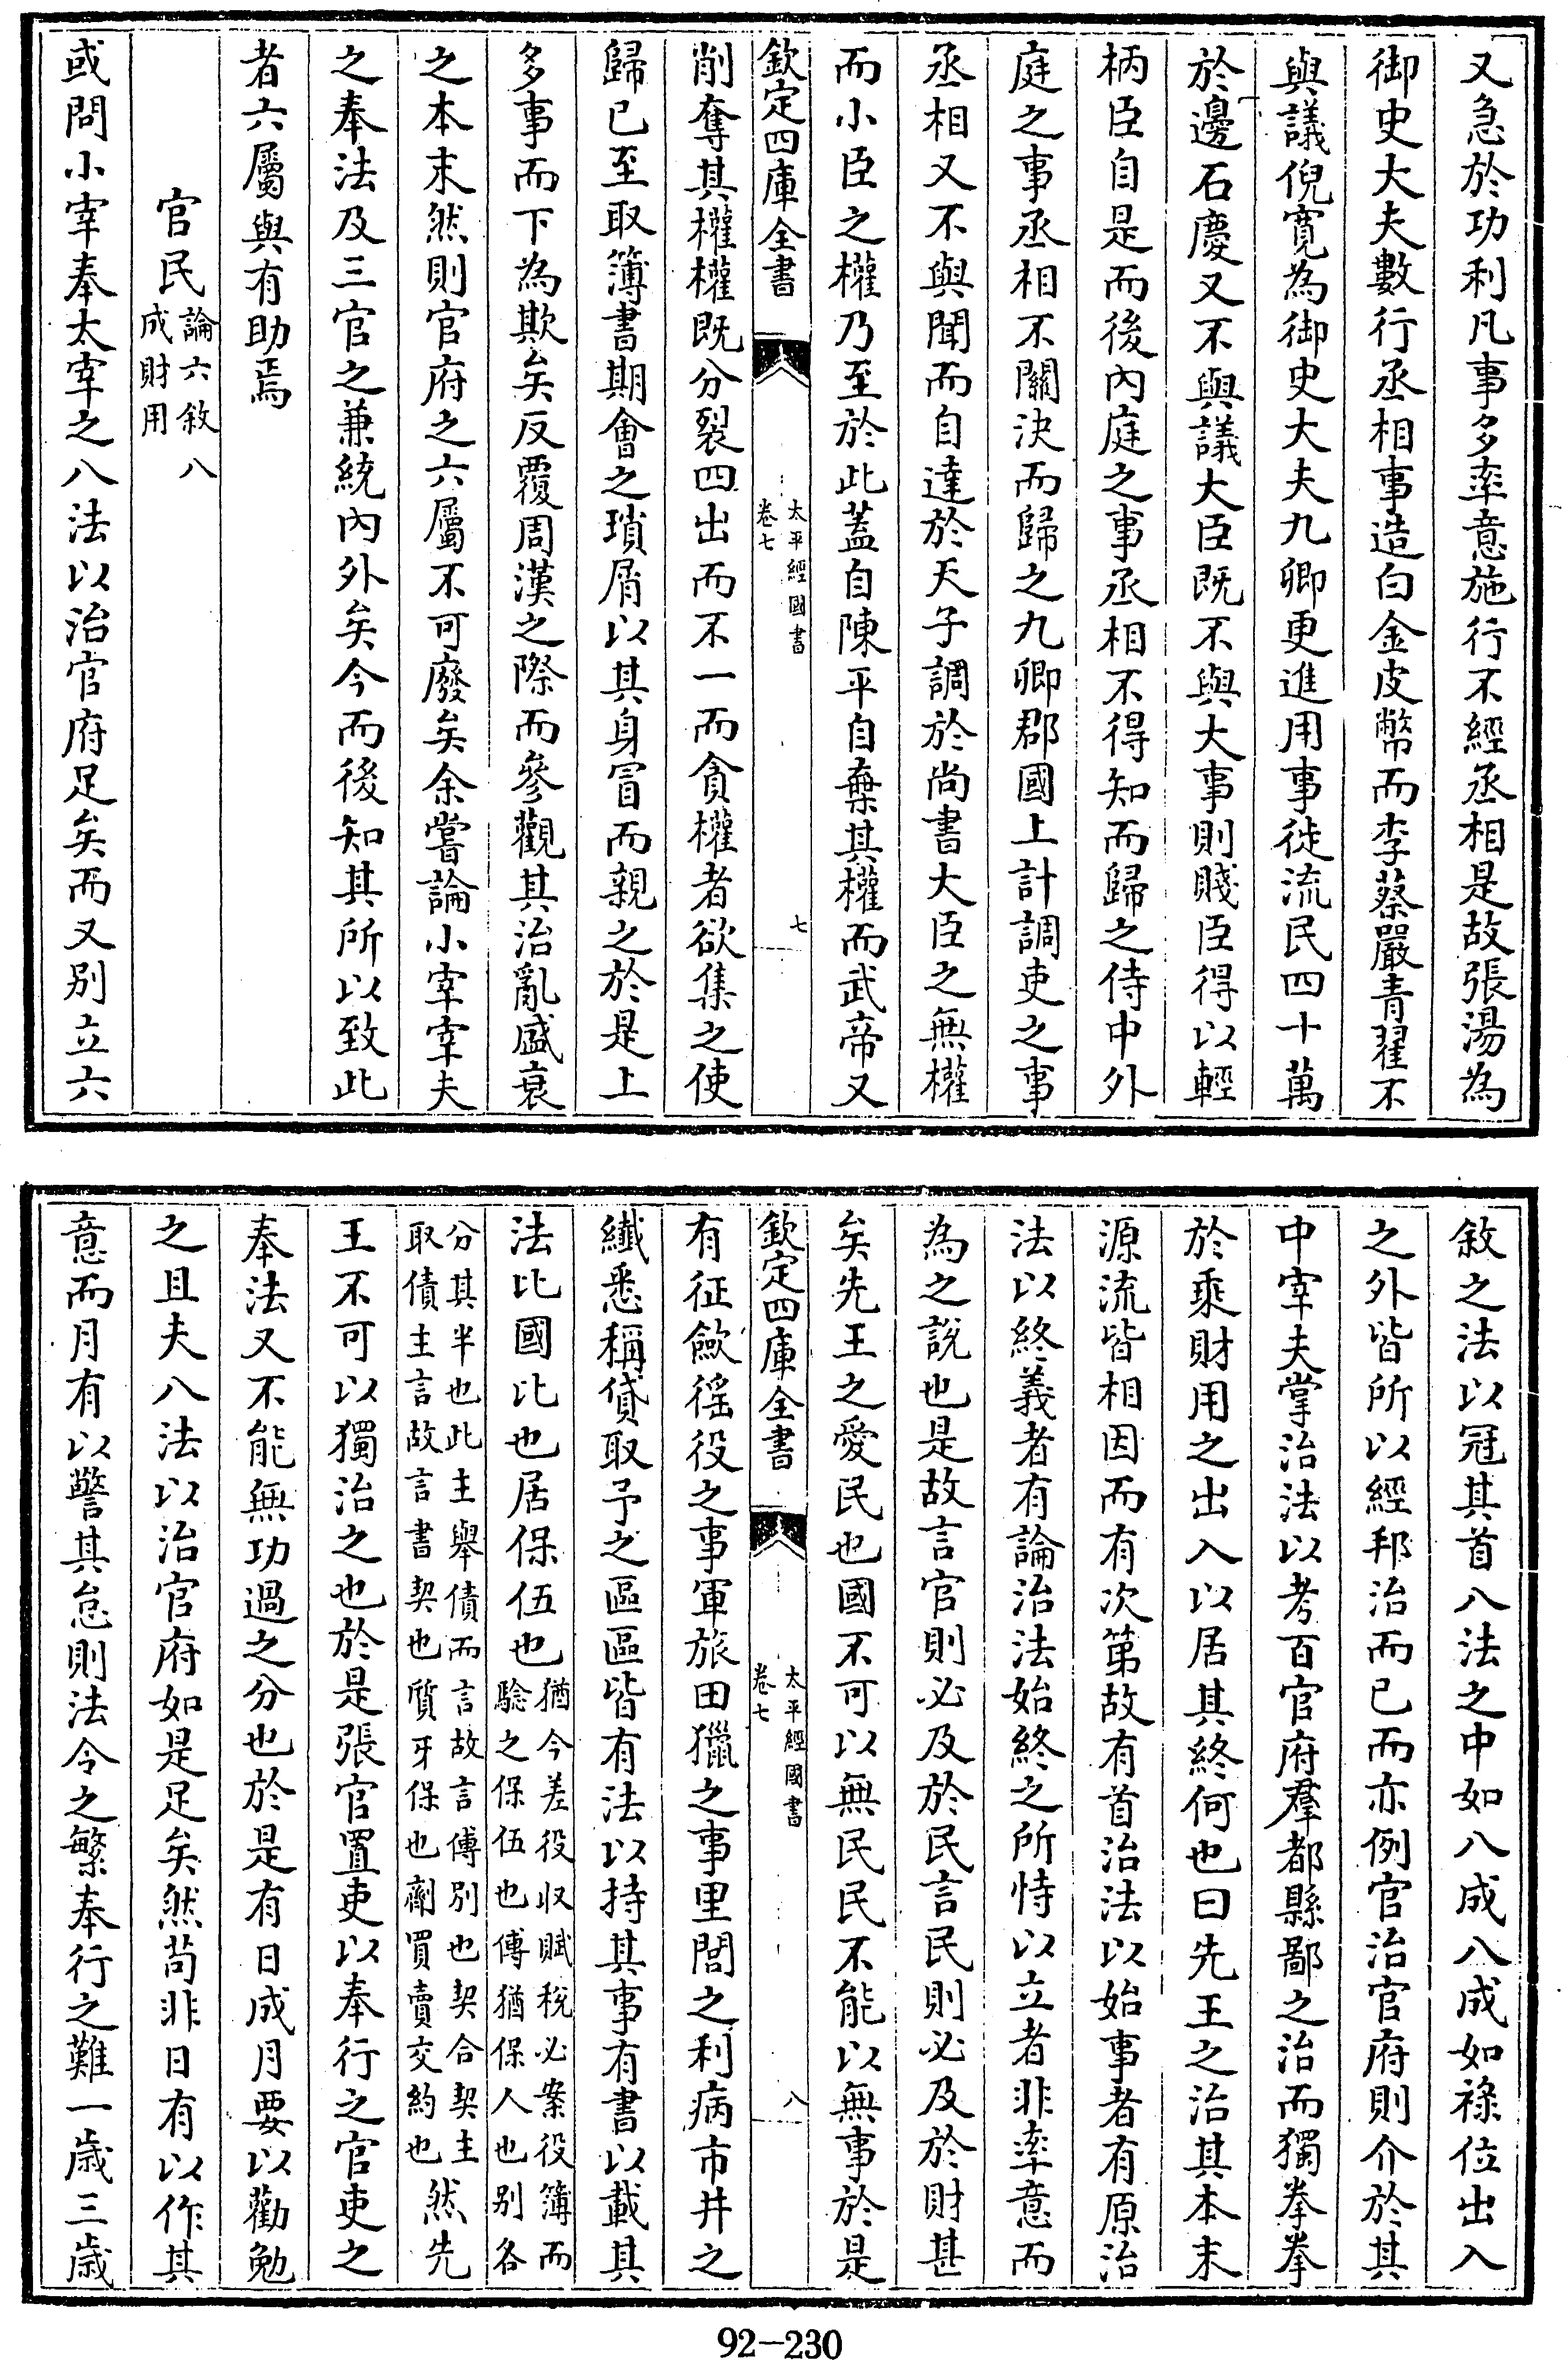 又急於功利凡事多率意施行不經丞相是故張湯為
御史大夫數行丞相事造白金皮幣而李蔡嚴青翟不
與議倪寛為御史大夫九卿更進用事徙流民四十萬
於邊石慶又不與議大臣既不與大事則賤臣得以輕
柄臣自是而後内庭之事丞相不得知而歸之侍中外
庭之事丞相不關決而歸之九卿郡國上計調吏之事
丞相又不與聞而自達於天子調於尚書大臣之無權
而小臣之權乃至於此蓋自陳平自棄其權而武帝又
欽定四庫全書
太平經國書
卷七
七
削奪其權權既分裂四出而不一而貪權者欲集之使
歸已至取簿書期會之瑣屑以其身冒而親之於是上
多事而下為欺矣反覆周漢之際而參觀其治亂盛衰
之本末然則官府之六屬不可廢矣余嘗論小宰宰夫
之奉法及三官之兼統内外矣今而後知其所以致此
者六屬與有助焉
官民論六敘八
成財用
或問小宰奉太宰之八法以治官府足矣而又别立六
敘之法以冠其首八法之中如八成八成如祿位出入
之外皆所以經邦治而已而亦例官治官府則介於其
中宰夫掌治法以考百官府羣都縣鄙之治而獨拳拳
於乘財用之出入以居其終何也曰先王之治其本末
源流皆相因而有次第故有首治法以始事者有原治
法以終義者有論治法始終之所恃以立者非率意而
為之說也是故言官則必及於民言民則必及於財甚
矣先王之愛民也國不可以無民民不能以無事於是
欽定四庫全書
太平經國書
卷七
八
有征歛徭役之事軍旅田獵之事里閭之利病市井之
纎悉稱貸取予之區區皆有法以持其事有書以載其
法比國比也居保伍也猶今差役収賦稅必案役簿而
騐之保伍也傅猶保人也别各
分其半也此主舉債而言故言傅别也契合契主
取債主言故言書契也質牙保也劑買賣交約也然先
王不可以獨治之也於是張官置吏以奉行之官吏之
奉法又不能無功過之分也於是有日成月要以勸勉
之且夫八法以治官府如是足矣然苟非日有以作其
意而月有以警其怠則法令之繁奉行之難一歲三歲
92-230